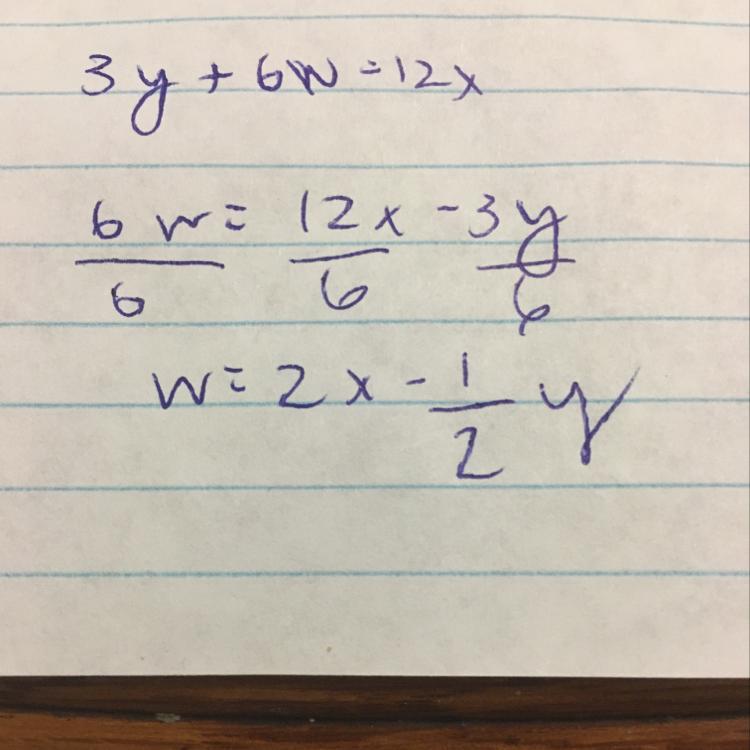 3y + 6w = 12x
6w = 12x - 3y
6 6 6
w = 2x - 1/2 y